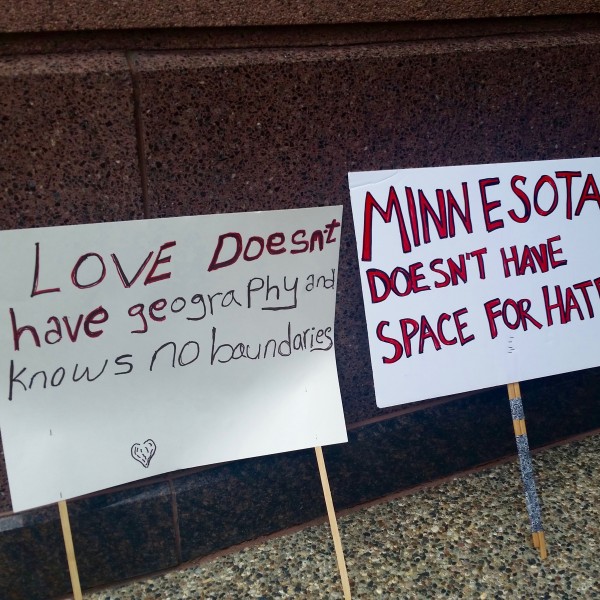 LOVE Doesn't
have geography and
knows no boundaries
MINNESOTA
DOESN'T HAVE
SPACE FOR HATE